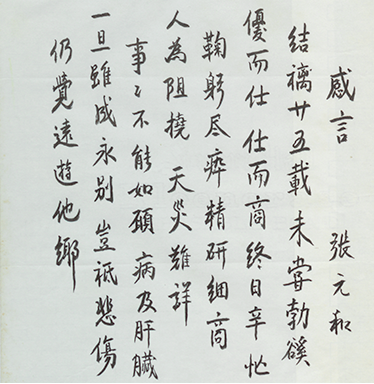 感言　張元和
結褵廿五載 未嘗勃谿
優而仕 仕而商 終日辛忙
鞠躬尽瘁 精研細商
人為阻撓 天災難詳
事〻不能如願 病及肝臟
一旦雖成永别 豈祇悲傷
仍覺遠遊他鄉